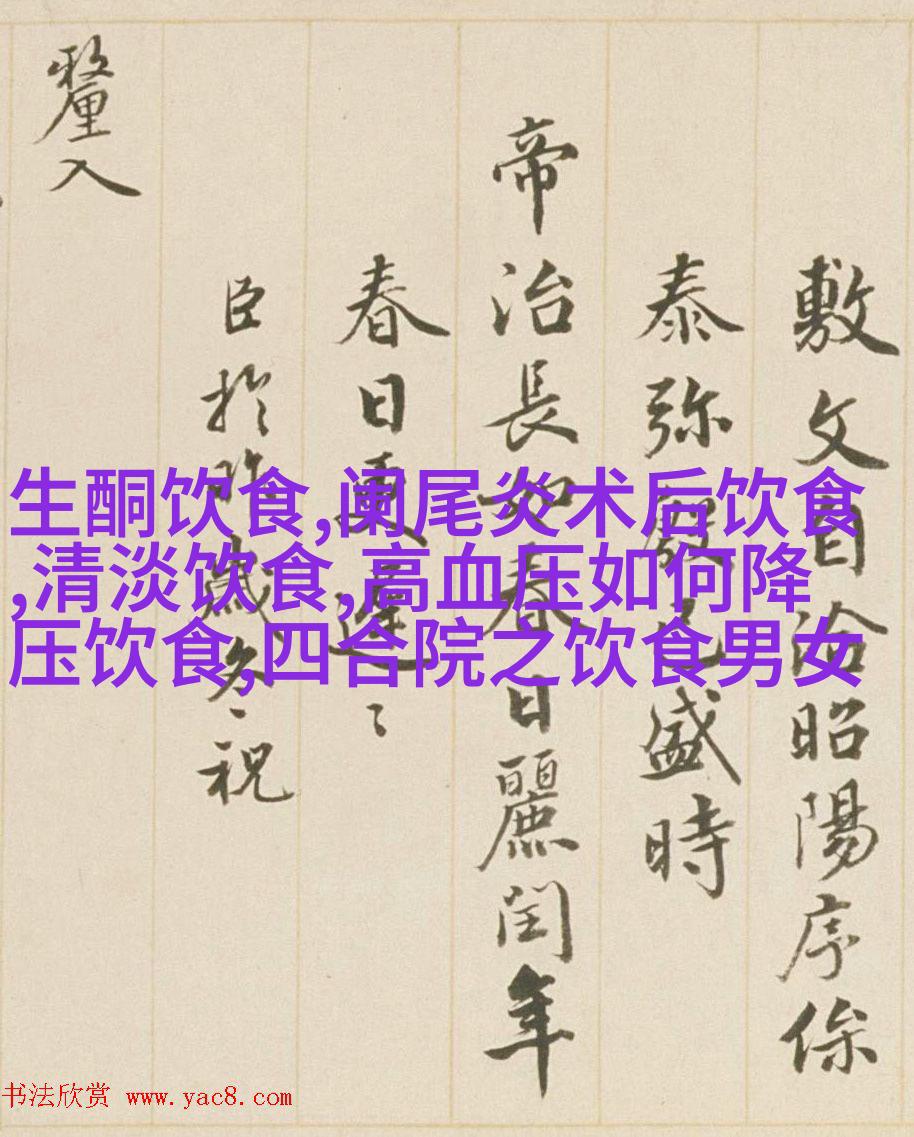 敷文自洽昭陽序
泰弥殷盛時
帝治長如春日麗閏年
春日更遲〻
臣於昨歲冬祝
釐入
生酮饮食,阑尾炎术后饮食
,清淡饮食,高血压如何降
压饮食,四合院之饮食男女
书法欣赏 www.yac8.com